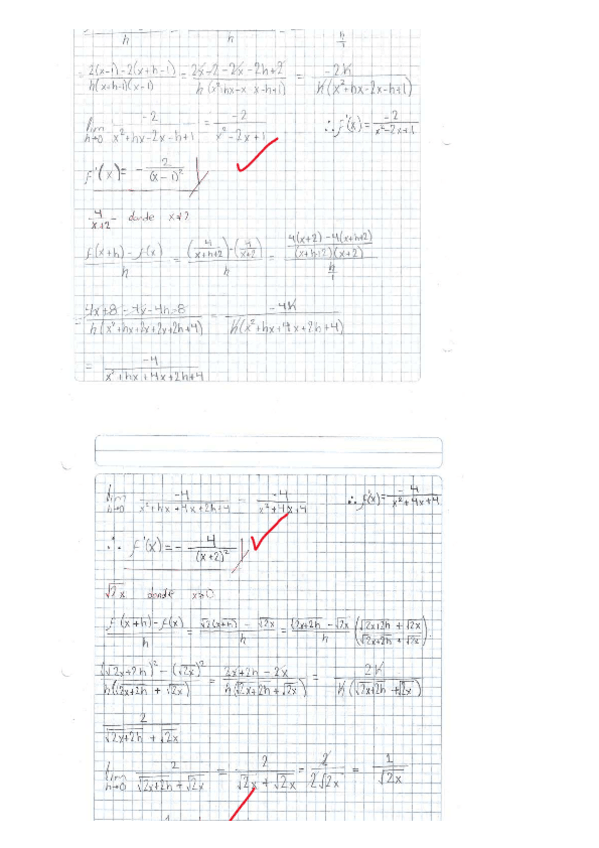 h h h/1
2(x-1)-2(x+h-1) / h(x+h-1)(x-1) = 2x-2-2x-2h+2 / h(x²+hx-x-x-h+1) = -2h / h(x²+hx-2x-h+1)
lim h→0 -2 / x²+hx-2x-h+1 = -2 / x²-2x+1 ∴ f'(x) = -2 / x²-2x+1
f'(x) = - 2 / (x-1)²
4 / x+2 donde
f(x+h) - f(x) / h = (4 / x+h+2) - (4 / x+2) / h = 4(x+2) - 4(x+h+2) / (x+h+2)(x+2) / h/1
4x+8-4x-4h-8 / h(x²+hx+2x+2x+2h+4) = -4h / h(x²+hx+4x+2h+4)
= -4 / x²+hx+4x+2h+4
lim h→0 -4 / x²+hx+4x+2h+4 = -4 / x²+4x+4 ∴ f'(x) = -4 / x²+4x+4
∴ f'(x) = - 4 / (x+2)²
√2x donde
f(x+h) - f(x) / h = √2(x+h) - √2x / h = √2x+2h - √2x / h (√2x+2h + √2x / √2x+2h + √2x)
(√2x+2h)² - (√2x)² / h(√2x+2h + √2x) = 2x+2h-2x / h(√2x+2h + √2x) = 2h / h(√2x+2h + √2x)
2 / √2x+2h + √2x
lim h→0 2 / √2x+2h + √2x = 2 / √2x + √2x = 2 / 2√2x = 1 / √2x